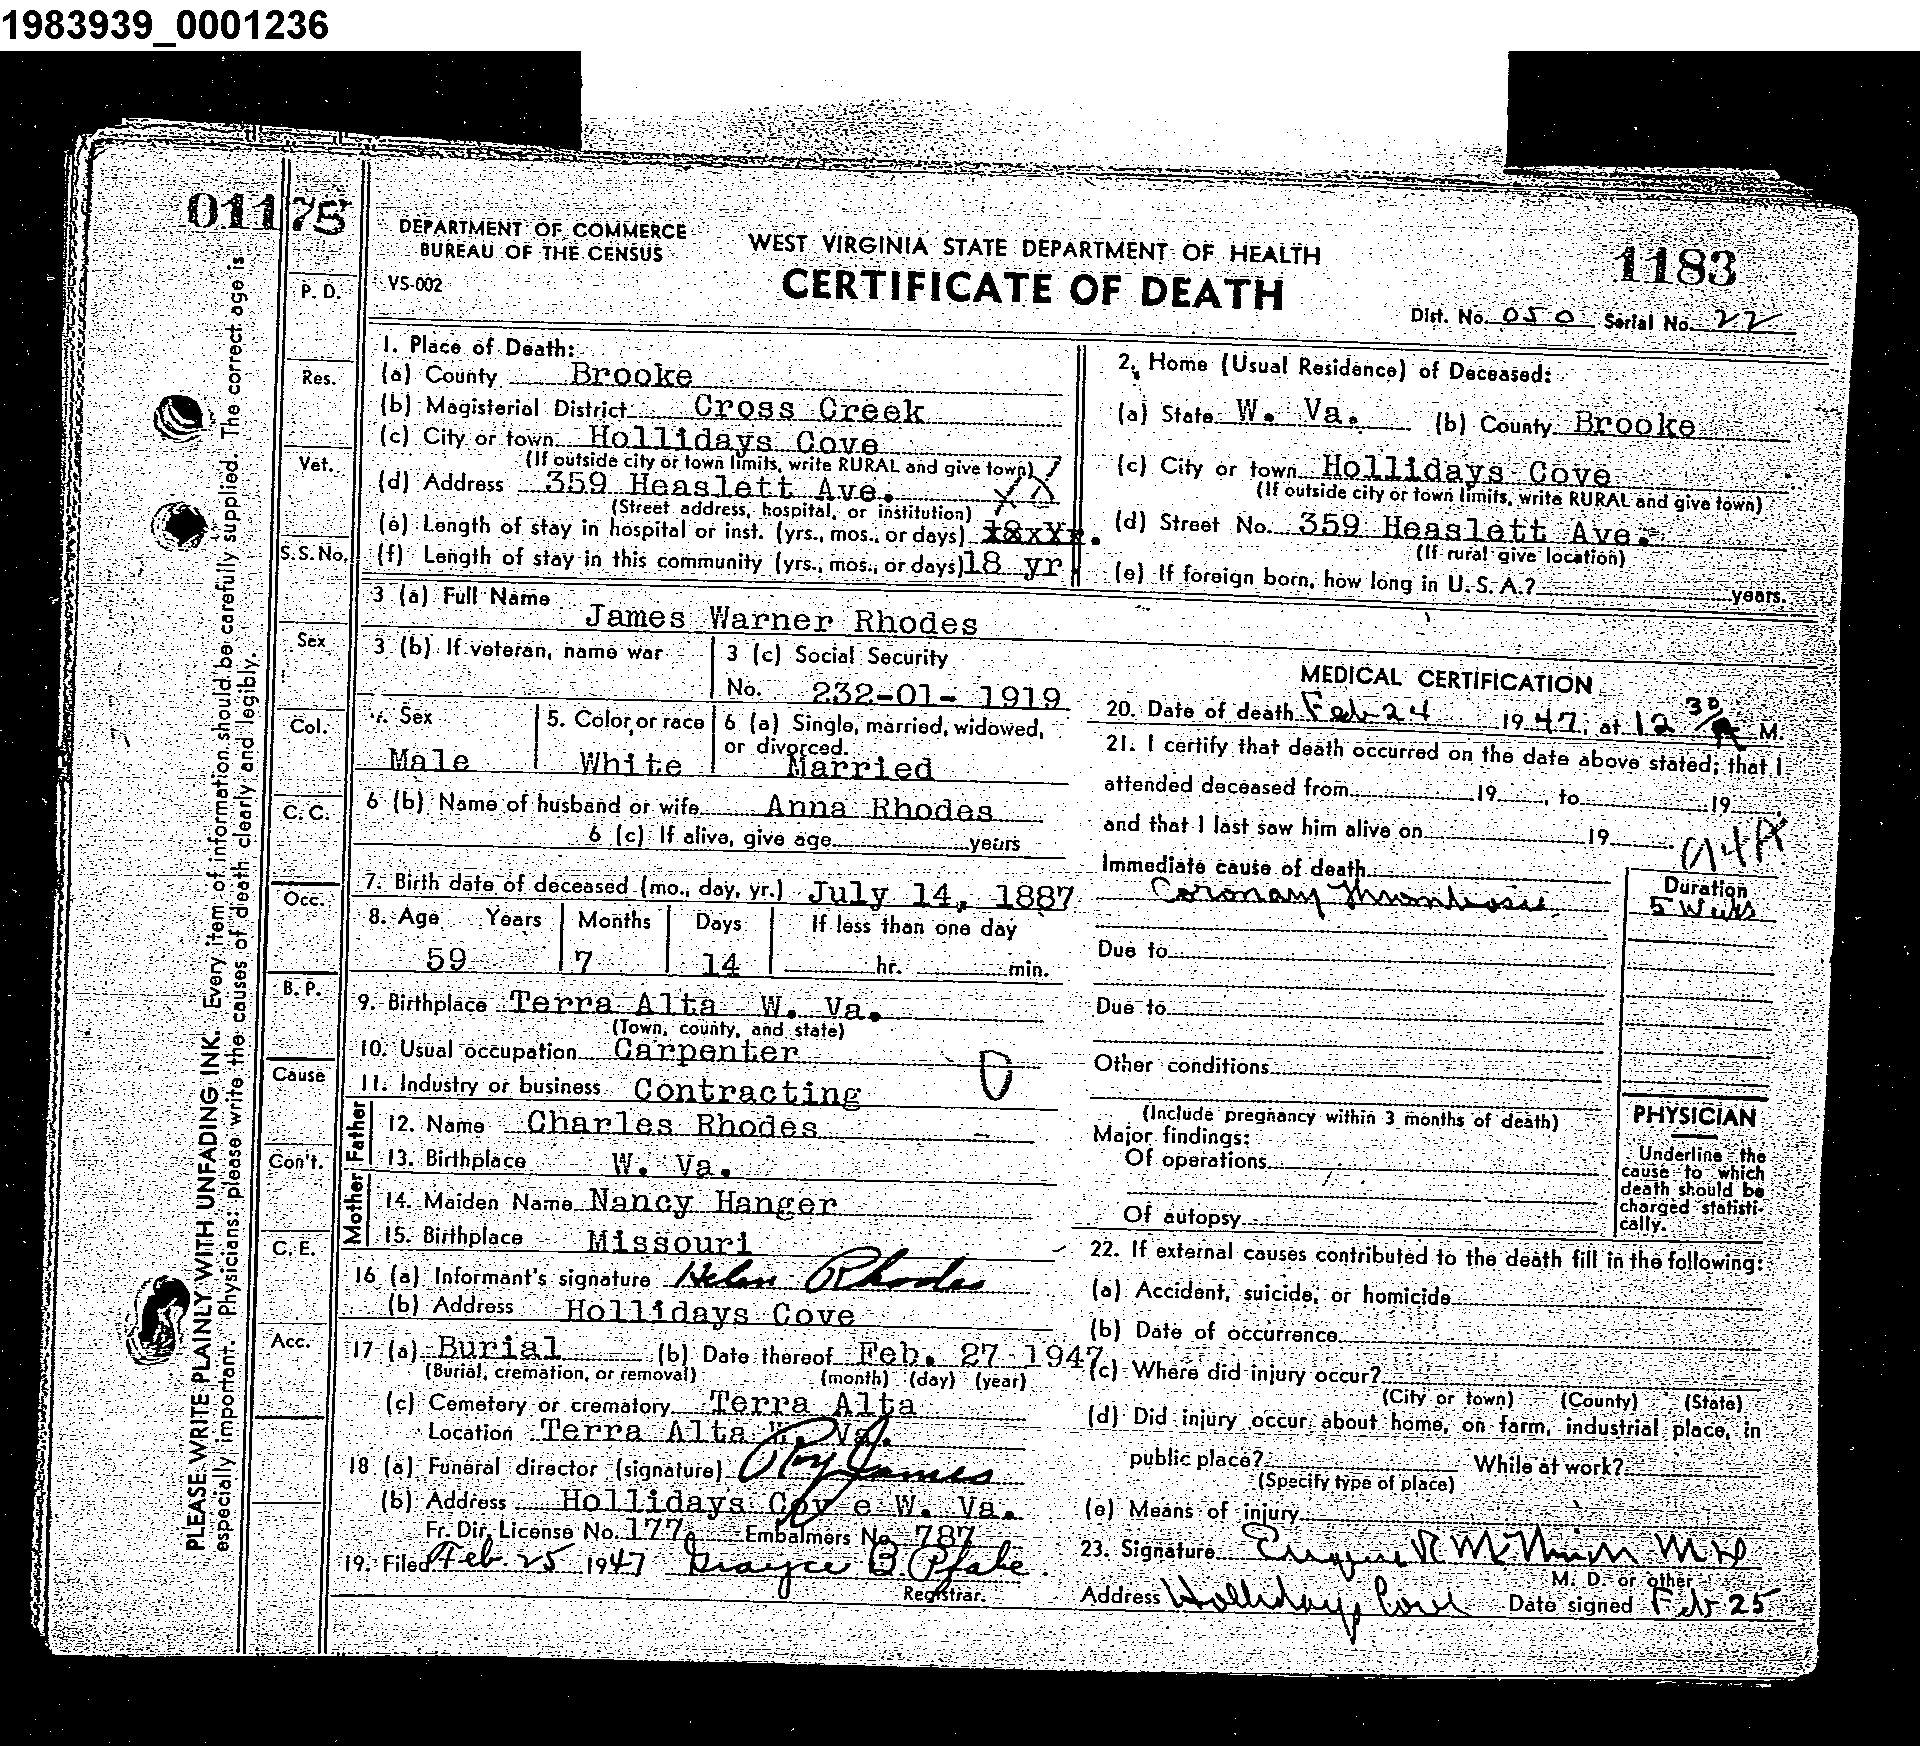 1983939_0001236
01175
DEPARTMENT OF COMMERCE
BUREAU OF THE CENSUS
VS-002
WEST VIRGINIA STATE DEPARTMENT OF HEALTH
CERTIFICATE OF DEATH
1183
Dist. No. 050 Serial No. 22
PLEASE WRITE PLAINLY WITH UNFADING INK. Every item of information should be carefully supplied. The correct age is
especially important. Physicians: please write the causes of death clearly and legibly.
P. D.
Res.
Vet.
S.S. No.
Sex
Col.
C. C.
Occ.
B. P.
Cause
Con't.
C. E.
Acc.
1. Place of Death:
(a) County Brooke
(b) Magisterial District Cross Creek
(c) City or town Hollidays Cove
(If outside city or town limits, write RURAL and give town)
(d) Address 359 Heaslett Ave.
(Street address, hospital, or institution)
(e) Length of stay in hospital or inst. (yrs., mos., or days)
(f) Length of stay in this community (yrs., mos., or days) 18 yr.
2. Home (Usual Residence) of Deceased:
(a) State W. Va. (b) County Brooke
(c) City or town Hollidays Cove
(If outside city or town limits, write RURAL and give town)
(d) Street No. 359 Heaslett Ave.
(If rural give location)
(e) If foreign born, how long in U. S. A.? years.
3 (a) Full Name James Warner Rhodes
3 (b) If veteran, name war
3 (c) Social Security
No. 232-01- 1919
4. Sex
Male
5. Color or race
White
6 (a) Single, married, widowed,
or divorced.
Married
6 (b) Name of husband or wife Anna Rhodes
6 (c) If alive, give age years
7. Birth date of deceased (mo., day, yr.) July 14, 1887
8. Age Years Months Days If less than one day
59 7 14 hr. min.
9. Birthplace Terra Alta W. Va.
(Town, county, and state)
10. Usual occupation Carpenter
11. Industry or business Contracting
Father
12. Name Charles Rhodes
13. Birthplace W. Va.
Mother
14. Maiden Name Nancy Hanger
15. Birthplace Missouri
16 (a) Informant's signature Helen Rhodes
(b) Address Hollidays Cove
17 (a) Burial (b) Date thereof Feb. 27 1947
(Burial, cremation, or removal) (month) (day) (year)
(c) Cemetery or crematory Terra Alta
Location Terra Alta W. Va.
18 (a) Funeral director (signature) Roy James
(b) Address Hollidays Cove W. Va.
Fr. Dir. License No. 177. Embalmers No. 787
19. Filed Feb. 25 1947 Grayce B Pfale
Registrar.
MEDICAL CERTIFICATION
20. Date of death Feb 24 1947, at 12 30 A M.
21. I certify that death occurred on the date above stated; that I
attended deceased from 19 , to 19
and that I last saw him alive on 19
Immediate cause of death
Coronary Thrombosis
Duration
5 Weeks
Due to
Due to
Other conditions
(Include pregnancy within 3 months of death)
Major findings:
Of operations
Of autopsy
PHYSICIAN
Underline the
cause to which
death should be
charged statisti-
cally.
22. If external causes contributed to the death fill in the following:
(a) Accident, suicide, or homicide
(b) Date of occurrence
(c) Where did injury occur?
(City or town) (County) (State)
(d) Did injury occur about home, on farm, industrial place, in
public place? While at work?
(Specify type of place)
(e) Means of injury
23. Signature Eugene R M D
M. D. or other
Address Hollidays Cove Date signed Feb 25